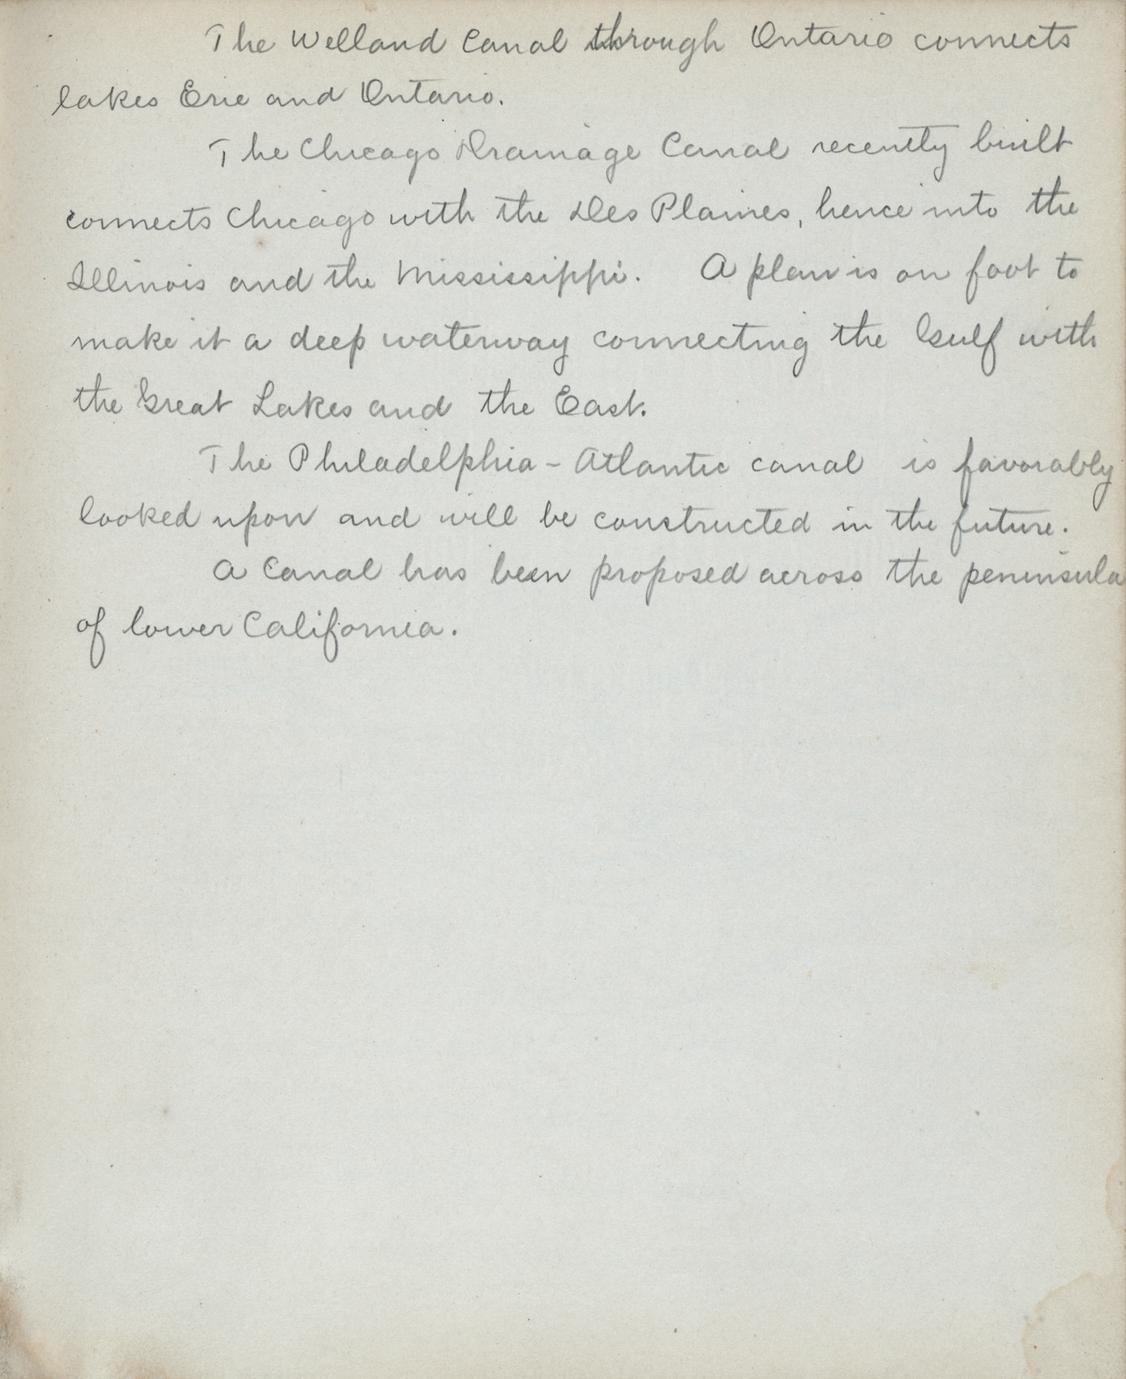 The Welland Canal through Ontario connects
lakes Erie and Ontario.
The Chicago Drainage Canal recently built
connects Chicago with the Des Plaines, hence into the
Illinois and the Mississippi. A plan is on foot to
make it a deep waterway connecting the Gulf with
the Great Lakes and the East.
The Philadelphia - Atlantic canal is favorably
looked upon and will be constructed in the future.
A Canal has been proposed across the peninsula
of lower California.